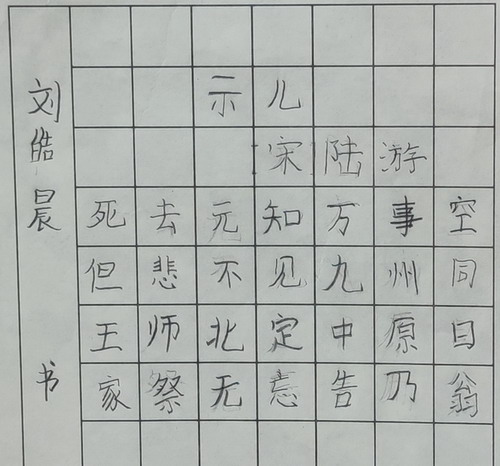 刘皓晨 书
示儿
[宋]陆游
死去元知万事空
但悲不见九州同
王师北定中原日
家祭无忘告乃翁